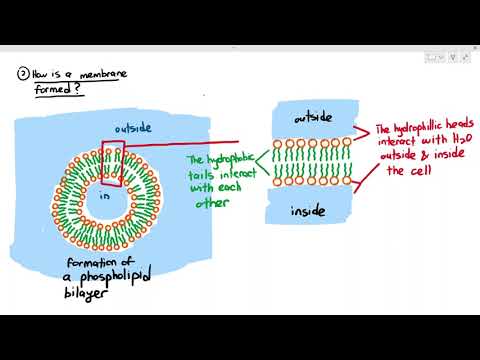 ② How is a membrane
formed?
outside
in
formation of
a phospholipid
bilayer
The hydrophobic
tails interact
with each
other
outside
inside
The hydrophillic heads
interact with H2O
outside & inside
the cell